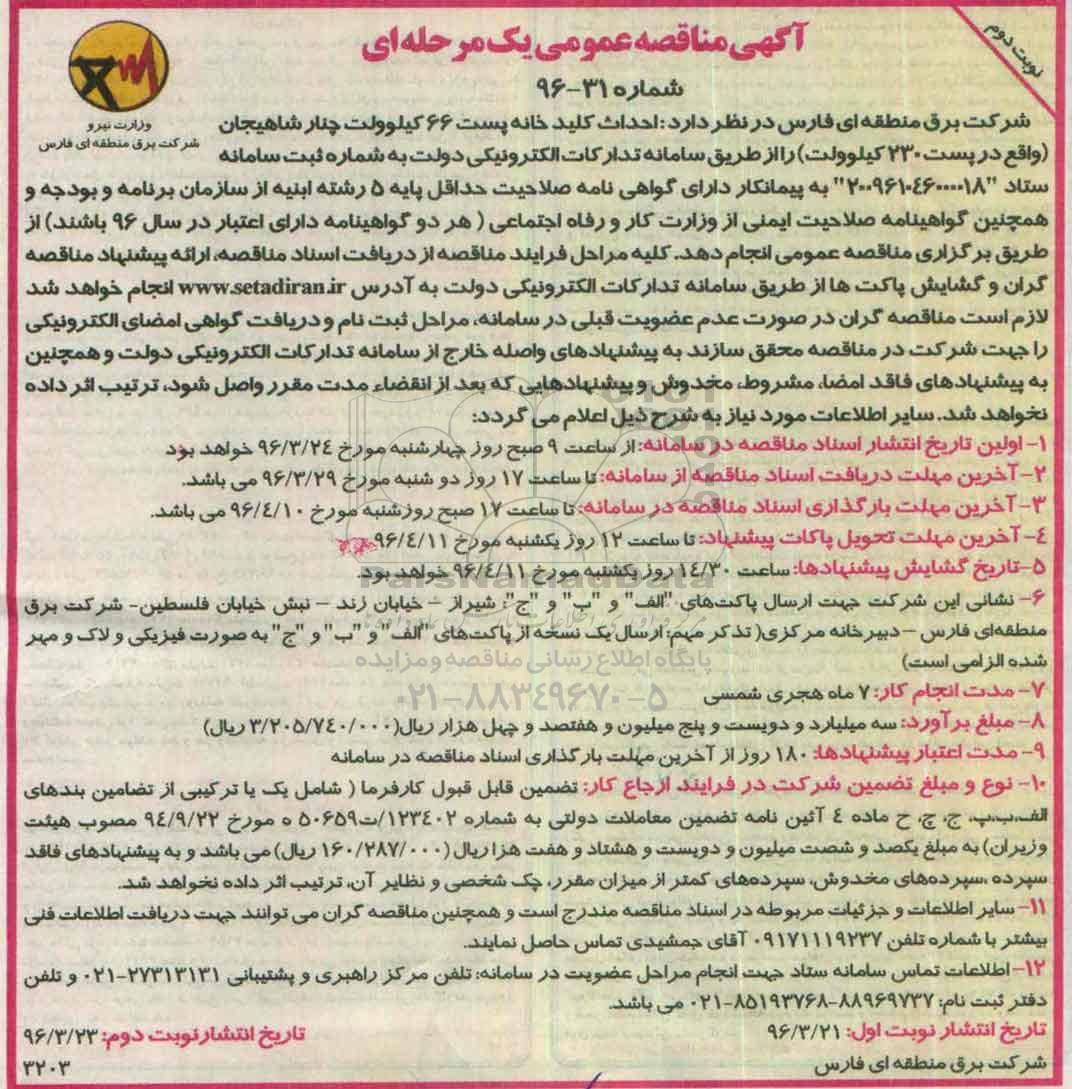 نوبت دوم
آگهی مناقصه عمومی یک مرحله ای
شماره ۳۱-۹۶
وزارت نیرو
شرکت برق منطقه ای فارس
شرکت برق منطقه ای فارس در نظر دارد: احداث کلید خانه پست ۶۶ کیلوولت چنار شاهیجان
(واقع در پست ۲۳۰ کیلوولت) را از طریق سامانه تدارکات الکترونیکی دولت به شماره ثبت سامانه
ستاد "۲۰۰۹۶۱۰۴۶۰۰۰۰۱۸" به پیمانکار دارای گواهی نامه صلاحیت حداقل پایه ۵ رشته ابنیه از سازمان برنامه و بودجه و
همچنین گواهینامه صلاحیت ایمنی از وزارت کار و رفاه اجتماعی ( هر دو گواهینامه دارای اعتبار در سال ۹۶ باشند) از
طریق برگزاری مناقصه عمومی انجام دهد. کلیه مراحل فرایند مناقصه از دریافت اسناد مناقصه، ارائه پیشنهاد مناقصه
گران و گشایش پاکت ها از طریق سامانه تدارکات الکترونیکی دولت به آدرس www.setadiran.ir انجام خواهد شد
لازم است مناقصه گران در صورت عدم عضویت قبلی در سامانه، مراحل ثبت نام و دریافت گواهی امضای الکترونیکی
را جهت شرکت در مناقصه محقق سازند به پیشنهادهای واصله خارج از سامانه تدارکات الکترونیکی دولت و همچنین
به پیشنهادهای فاقد امضا، مشروط، مخدوش و پیشنهادهایی که بعد از انقضاء مدت مقرر واصل شود، ترتیب اثر داده
نخواهد شد. سایر اطلاعات مورد نیاز به شرح ذیل اعلام می گردد:
۱- اولین تاریخ انتشار اسناد مناقصه در سامانه: از ساعت ۹ صبح روز چهارشنبه مورخ ۹۶/۳/۲۴ خواهد بود
۲- آخرین مهلت دریافت اسناد مناقصه از سامانه: تا ساعت ۱۷ روز دو شنبه مورخ ۹۶/۳/۲۹ می باشد.
۳- آخرین مهلت بارگذاری اسناد مناقصه در سامانه: تا ساعت ۱۷ صبح روزشنبه مورخ ۹۶/۴/۱۰ می باشد.
۴- آخرین مهلت تحویل پاکات پیشنهاد: تا ساعت ۱۲ روز یکشنبه مورخ ۹۶/۴/۱۱
۵- تاریخ گشایش پیشنهادها: ساعت ۱۴/۳۰ روز یکشنبه مورخ ۹۶/۴/۱۱ خواهد بود.
۶- نشانی این شرکت جهت ارسال پاکت‌های "الف" و "ب" و "ج": شیراز – خیابان زند – نبش خیابان فلسطین- شرکت برق
منطقه‌ای فارس – دبیرخانه مرکزی( تذکر مهم: ارسال یک نسخه از پاکت‌های "الف" و "ب" و "ج" به صورت فیزیکی و لاک و مهر
شده الزامی است)
پایگاه اطلاع رسانی مناقصه و مزایده
۷- مدت انجام کار: ۷ ماه هجری شمسی
۰۲۱-۸۸۳۴۹۶۷۰-۵
۸- مبلغ برآورد: سه میلیارد و دویست و پنج میلیون و هفتصد و چهل هزار ریال(۳/۲۰۵/۷۴۰/۰۰۰ ریال)
۹- مدت اعتبار پیشنهادها: ۱۸۰ روز از آخرین مهلت بارگذاری اسناد مناقصه در سامانه
۱۰- نوع و مبلغ تضمین شرکت در فرایند ارجاع کار: تضمین قابل قبول کارفرما ( شامل یک یا ترکیبی از تضامین بندهای
الف،ب،پ، ج، چ، ح ماده ۴ آئین نامه تضمین معاملات دولتی به شماره ۱۲۳۴۰۲/ت۵۰۶۵۹ ه مورخ ۹۴/۹/۲۲ مصوب هیئت
وزیران) به مبلغ یکصد و شصت میلیون و دویست و هشتاد و هفت هزار ریال (۱۶۰/۲۸۷/۰۰۰ ریال) می باشد و به پیشنهادهای فاقد
سپرده ،سپرده‌های مخدوش، سپرده‌های کمتر از میزان مقرر، چک شخصی و نظایر آن، ترتیب اثر داده نخواهد شد.
۱۱- سایر اطلاعات و جزئیات مربوطه در اسناد مناقصه مندرج است و همچنین مناقصه گران می توانند جهت دریافت اطلاعات فنی
بیشتر با شماره تلفن ۰۹۱۷۱۱۱۹۲۳۷ آقای جمشیدی تماس حاصل نمایند.
۱۲- اطلاعات تماس سامانه ستاد جهت انجام مراحل عضویت در سامانه: تلفن مرکز راهبری و پشتیبانی ۲۷۳۱۳۱۳۱-۰۲۱ و تلفن
دفتر ثبت نام: ۸۸۹۶۹۷۳۷-۸۵۱۹۳۷۶۸-۰۲۱ می باشد.
تاریخ انتشار نوبت اول: ۹۶/۳/۲۱
تاریخ انتشار نوبت دوم: ۹۶/۳/۲۳
شرکت برق منطقه ای فارس
۳۲۰۳